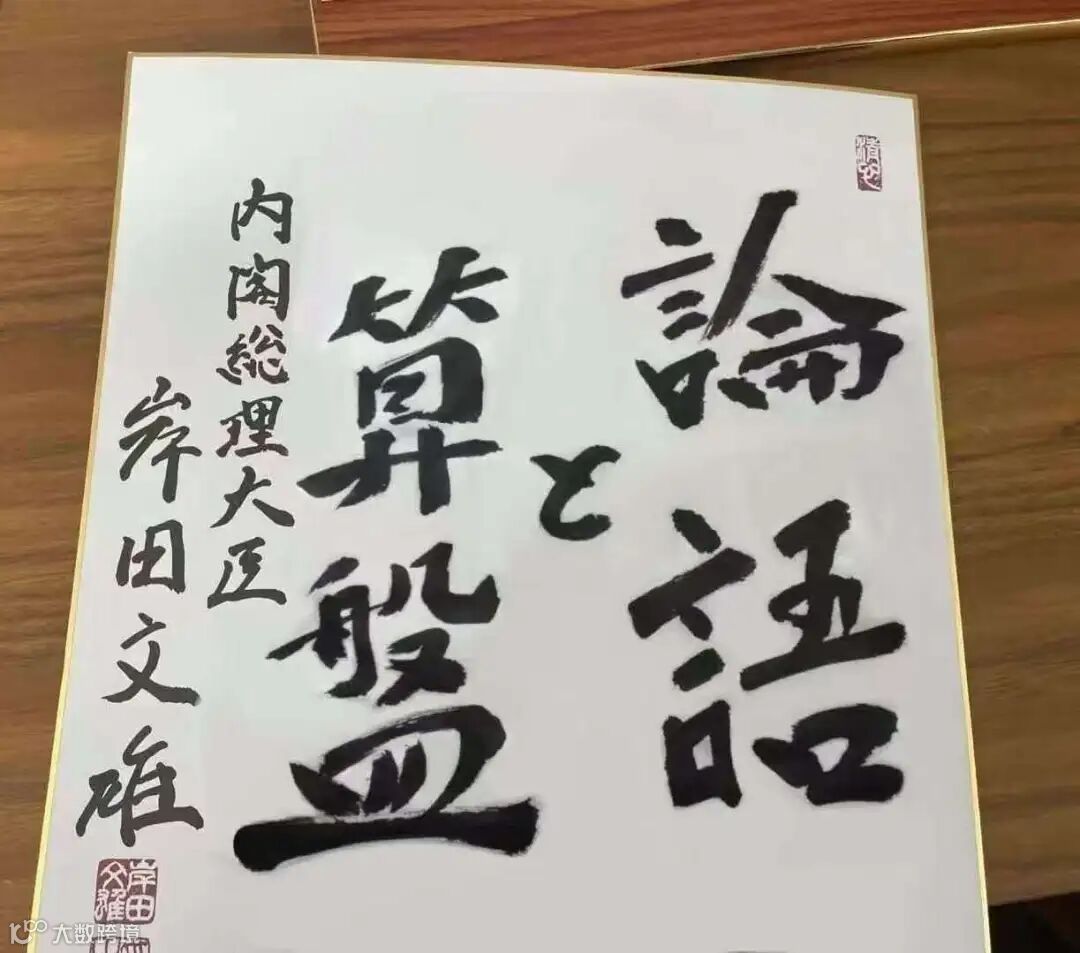 論語
と
算盤
内閣総理大臣
岸田文雄
岸田
文雄
大数跨境